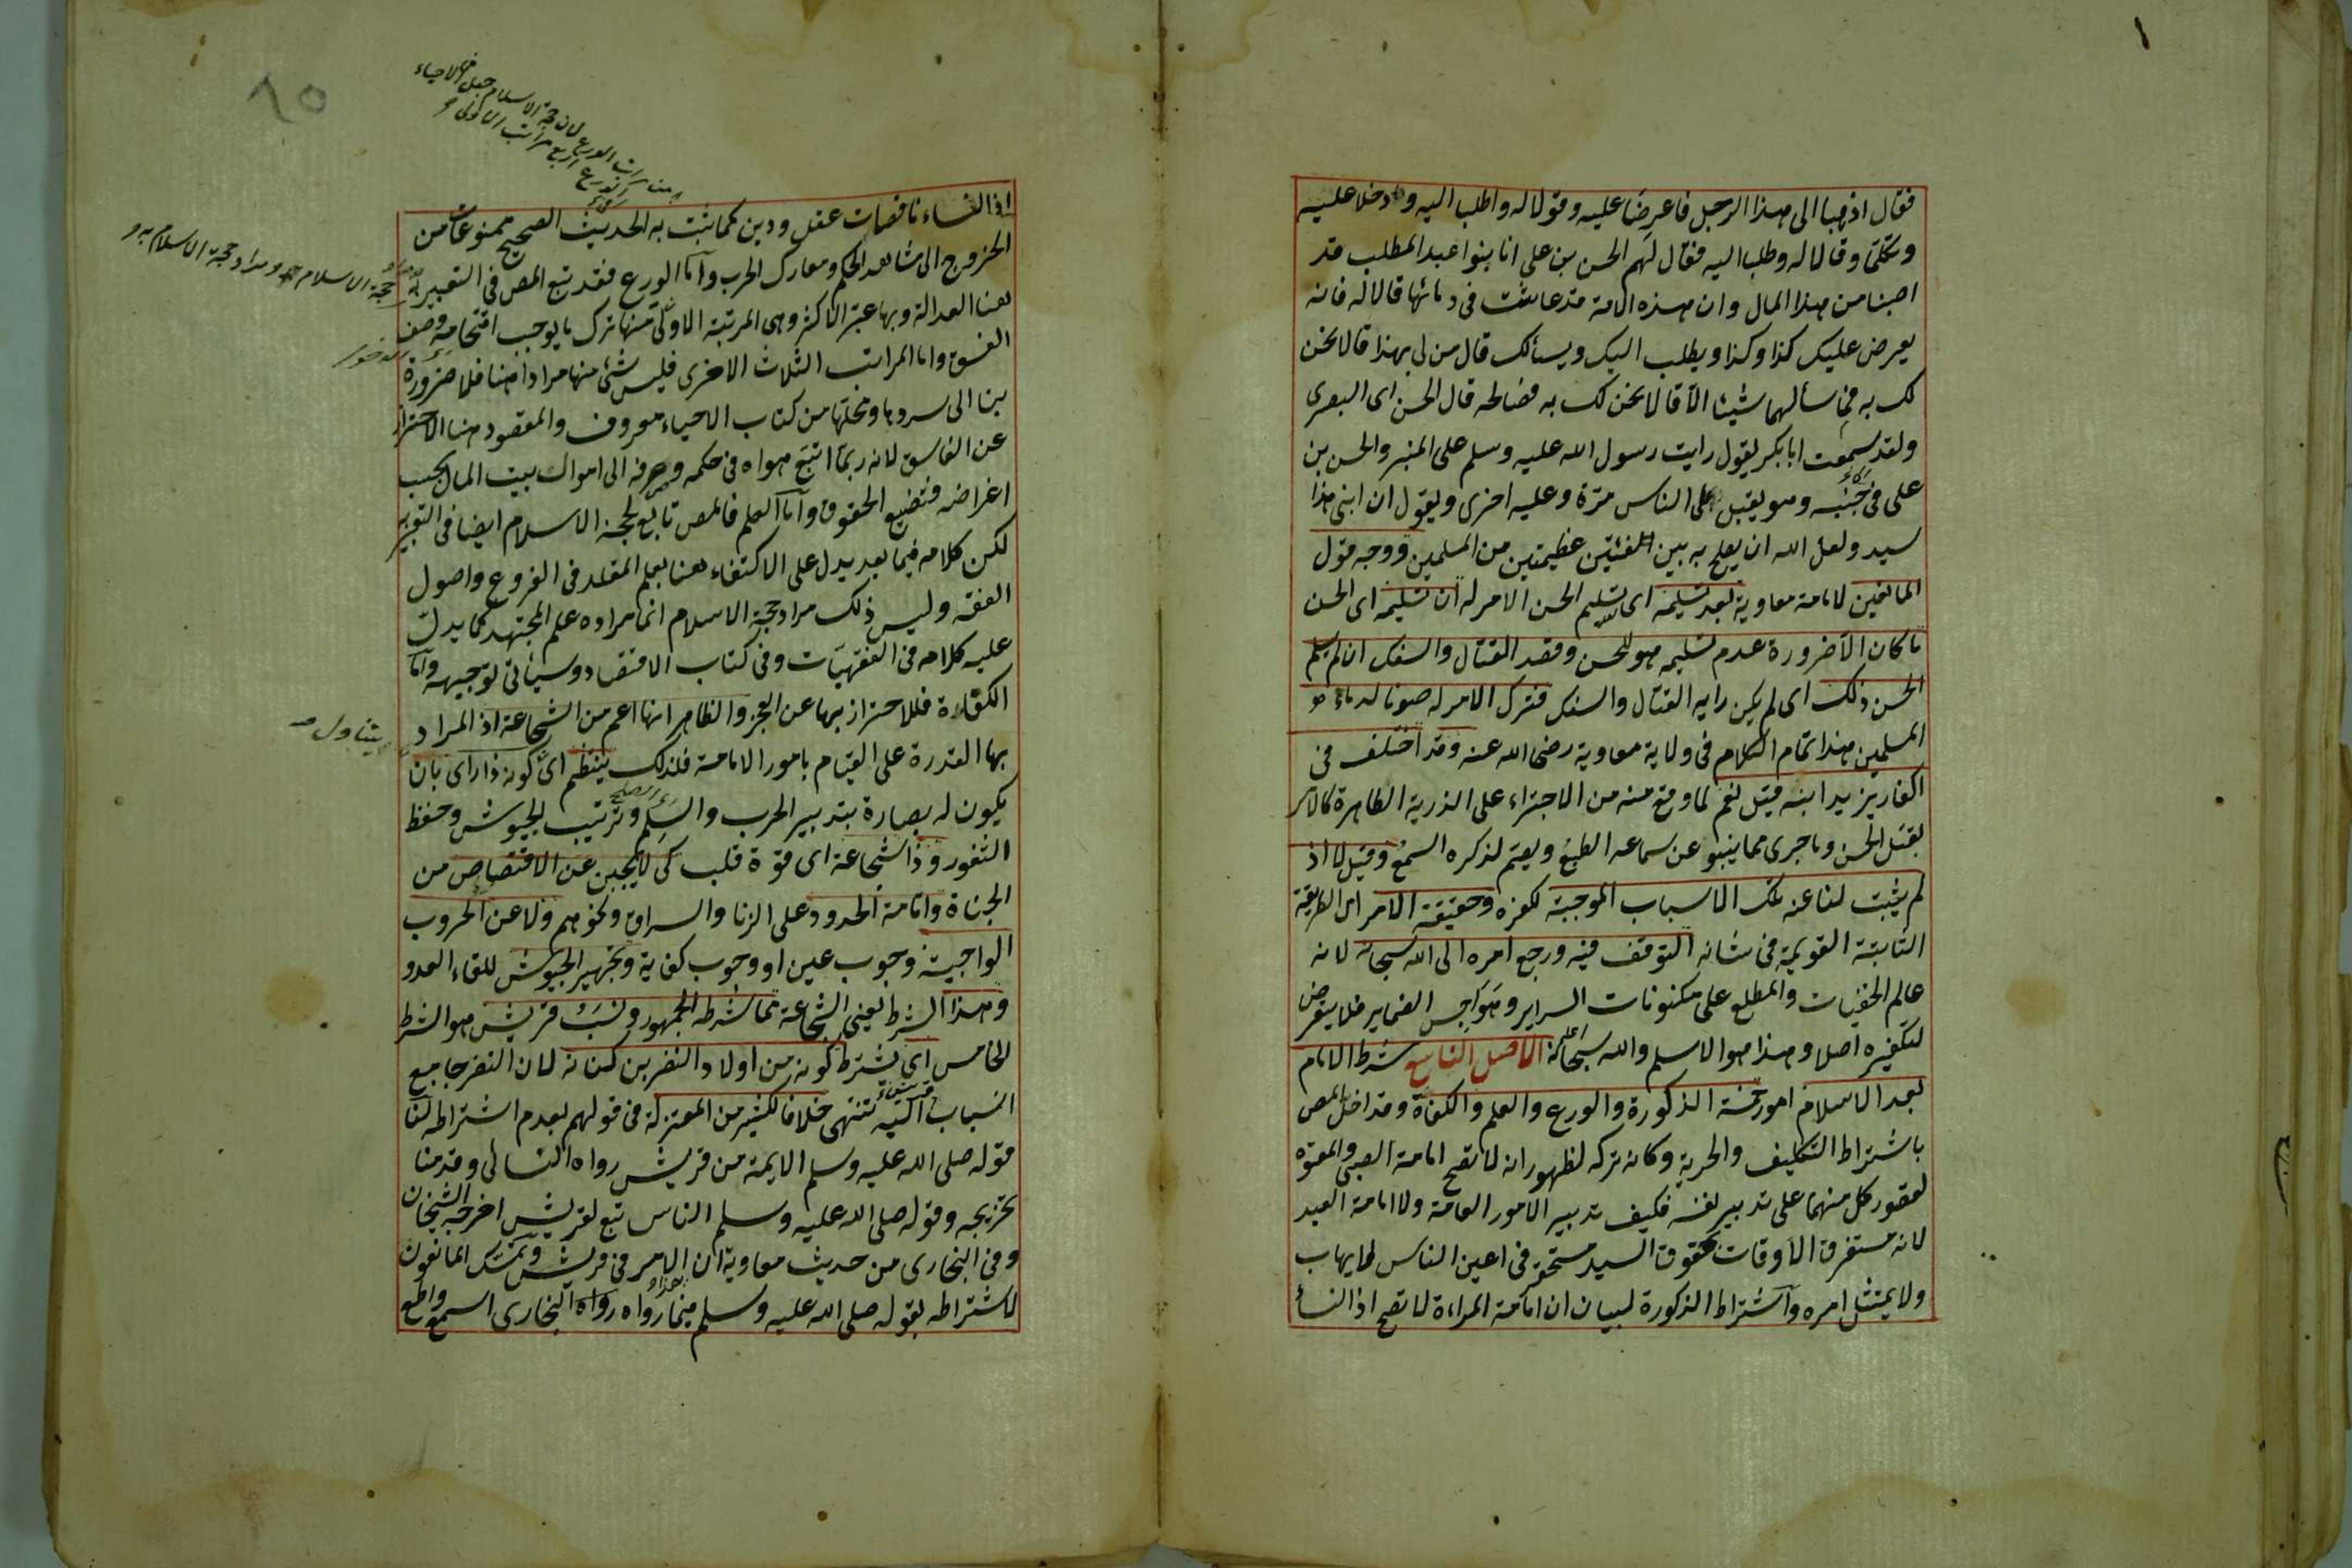 فقال اذهبا الى هذا الرجل فاعرضا عليه وقولا له واطلبا اليه فدخلا عليه
وتكلما وقالا له وطلبا اليه فقال لهم الحسن بن على انا بنوا عبد المطلب قد
اصبنا من هذا المال وان هذه الامة قد عاثت فى دمائها قالا له فانه
يعرض عليك كذا وكذا ويطلب اليك ويسألك قال من لى بهذا قالا نحن
لك به فما سألهما شيئا الا قالا نحن لك به فصالحه قال الحسن اى البصرى
ولقد سمعت ابا بكر يقول رايت رسول الله عليه وسلم على المنبر والحسن بن
على فى جنبه وهو يقبل على الناس مرة وعليه اخرى ويقول ان ابنى هذا
سيد ولعل الله ان يصلح به بين الفئتين عظيمتين من المسلمين ووجه قول
المانعين لامامة معاوية بعد تسليمه اى تسليم الحسن الامر له ان تسليمه اى الحسن
ما كان الا ضرورة عدم تسليمه هو للحسن وقصد القتال والسفك ان لم يسلم
الحسن ذلك اى لم يكن رايه القتال والسفك فترك الامر له صونا لدماء
المسلمين هذا تمام الكلام فى ولاية معاوية رضى الله عنه وقد اختلف فى
اكفار يزيد ابنه فقيل نعم لما وقع منه من الاجتراء على الذرية الطاهرة كالامر
بقتل الحسن وما جرى مما ينبو عن سماعه الطبع ويصم لذكره السمع وقيل لا اذ
لم يثبت لنا عنه تلك الاسباب الموجبة لكفره وحقيقة الامر اى الطريقة
الثابتة القويمة فى شانه التوقف فيه ورجع امره الى الله سبحانه لانه
عالم الخفيات والمطلع على مكنونات السراير وهواجس الضماير فلا يتعرض
لتكفيره اصلا وهذا هو الاسلم والله سبحانه اعلم الاصل التاسع شرط الامام
بعد الاسلام امور خمسة الذكورة والورع والعلم والكفاة وقد اخل المص
باشتراط التكليف والحرية وكانه تركه لظهور انه لا تصح امامة الصبى والمعتوه
لقصور كل منهما على تدبير نفسه فكيف تدبير الامور العامة ولا امامة العبد
لانه مستغرق الاوقات بحقوق السيد مستحقر فى اعين الناس لا يهاب
ولا يمتثل امره واشتراط الذكورة لبيان ان امامة المراءة لا تصح اذ النسأ
٨٥
اذ النساء ناقصات عقل ودين كما ثبت به الحديث الصحيح ممنوعات من
الخروج الى مشاهد الحكم ومعارك الحرب واما الورع فقد تبع المص فى التعبير به
هنا العدالة وبها عبر الاكثر وهى المرتبة الاولى منها ترك ما يوجب اقتحامه وصف
الفسق واما المراتب الثلاث الاخرى فليس شئ منها مرادا هنا فلا ضرورة
بنا الى سردها ومحلها من كتاب الاحياء معروف والمقصود هنا الاحتراز
عن الفاسق لانه ربما اتبع هواه فى حكمه وصرفه الى اموال بيت المال بحسب
اغراضه فتضيع الحقوق واما العلم فالمص تابع لحجة الاسلام ايضا فى التعبير
لكن كلامه فيما بعد يدل على الاكتفاء هنا بعلم المقلد فى الفروع واصول
الفقه وليس ذلك مراد حجة الاسلام انما مراده علم المجتهد كما يدل
عليه كلامه فى الفقهيات وفى كتاب الاقتصاد وسياتى توجيهه واما
الكفاءة فللاحتراز بها عن العجز والظاهر انها اعم من الشجاعة اذ المراد
بها القدرة على القيام بامور الامامة فلذلك ينتظم اى كونه ذا راى بان
يكون له بصارة بتدبير الحرب والسلم وترتيب الجيوش وحفظ
الثغور وذا شجاعة اى قوة قلب كى لا يجبن عن الاقتصاص من
الجناة واقامة الحدود على الزنا والسراق ونحوهم ولا عن الحروب
الواجبة وجوب عين او وجوب كفاية وتجهيز الجيوش للقاء العدو
وهذا الشرط يعنى الشجاعة مما شرطه الجمهور ونسب قريش هو الشرط
الخامس اى يشترط كونه من اولاد النضر بن كنانة لان النضر جامع
انساب قريش اليه تنتهى خلافا لكثير من المعتزلة فى قولهم بعدم اشتراطه لنا
قوله صلى الله عليه وسلم الايمة من قريش رواه النسائى وقدمنا
تخريجه وقوله صلى الله عليه وسلم الناس تبع لقريش اخرجه الشيخان
وفى البخارى من حديث معاوية ان الامر فى قريش وتمسك المانعون
لاشتراطه بقوله صلى الله عليه وسلم فيما رواه رواه البخارى اسمع واطع
حجة الاسلام ومراد حجة الاسلام به
يتناول